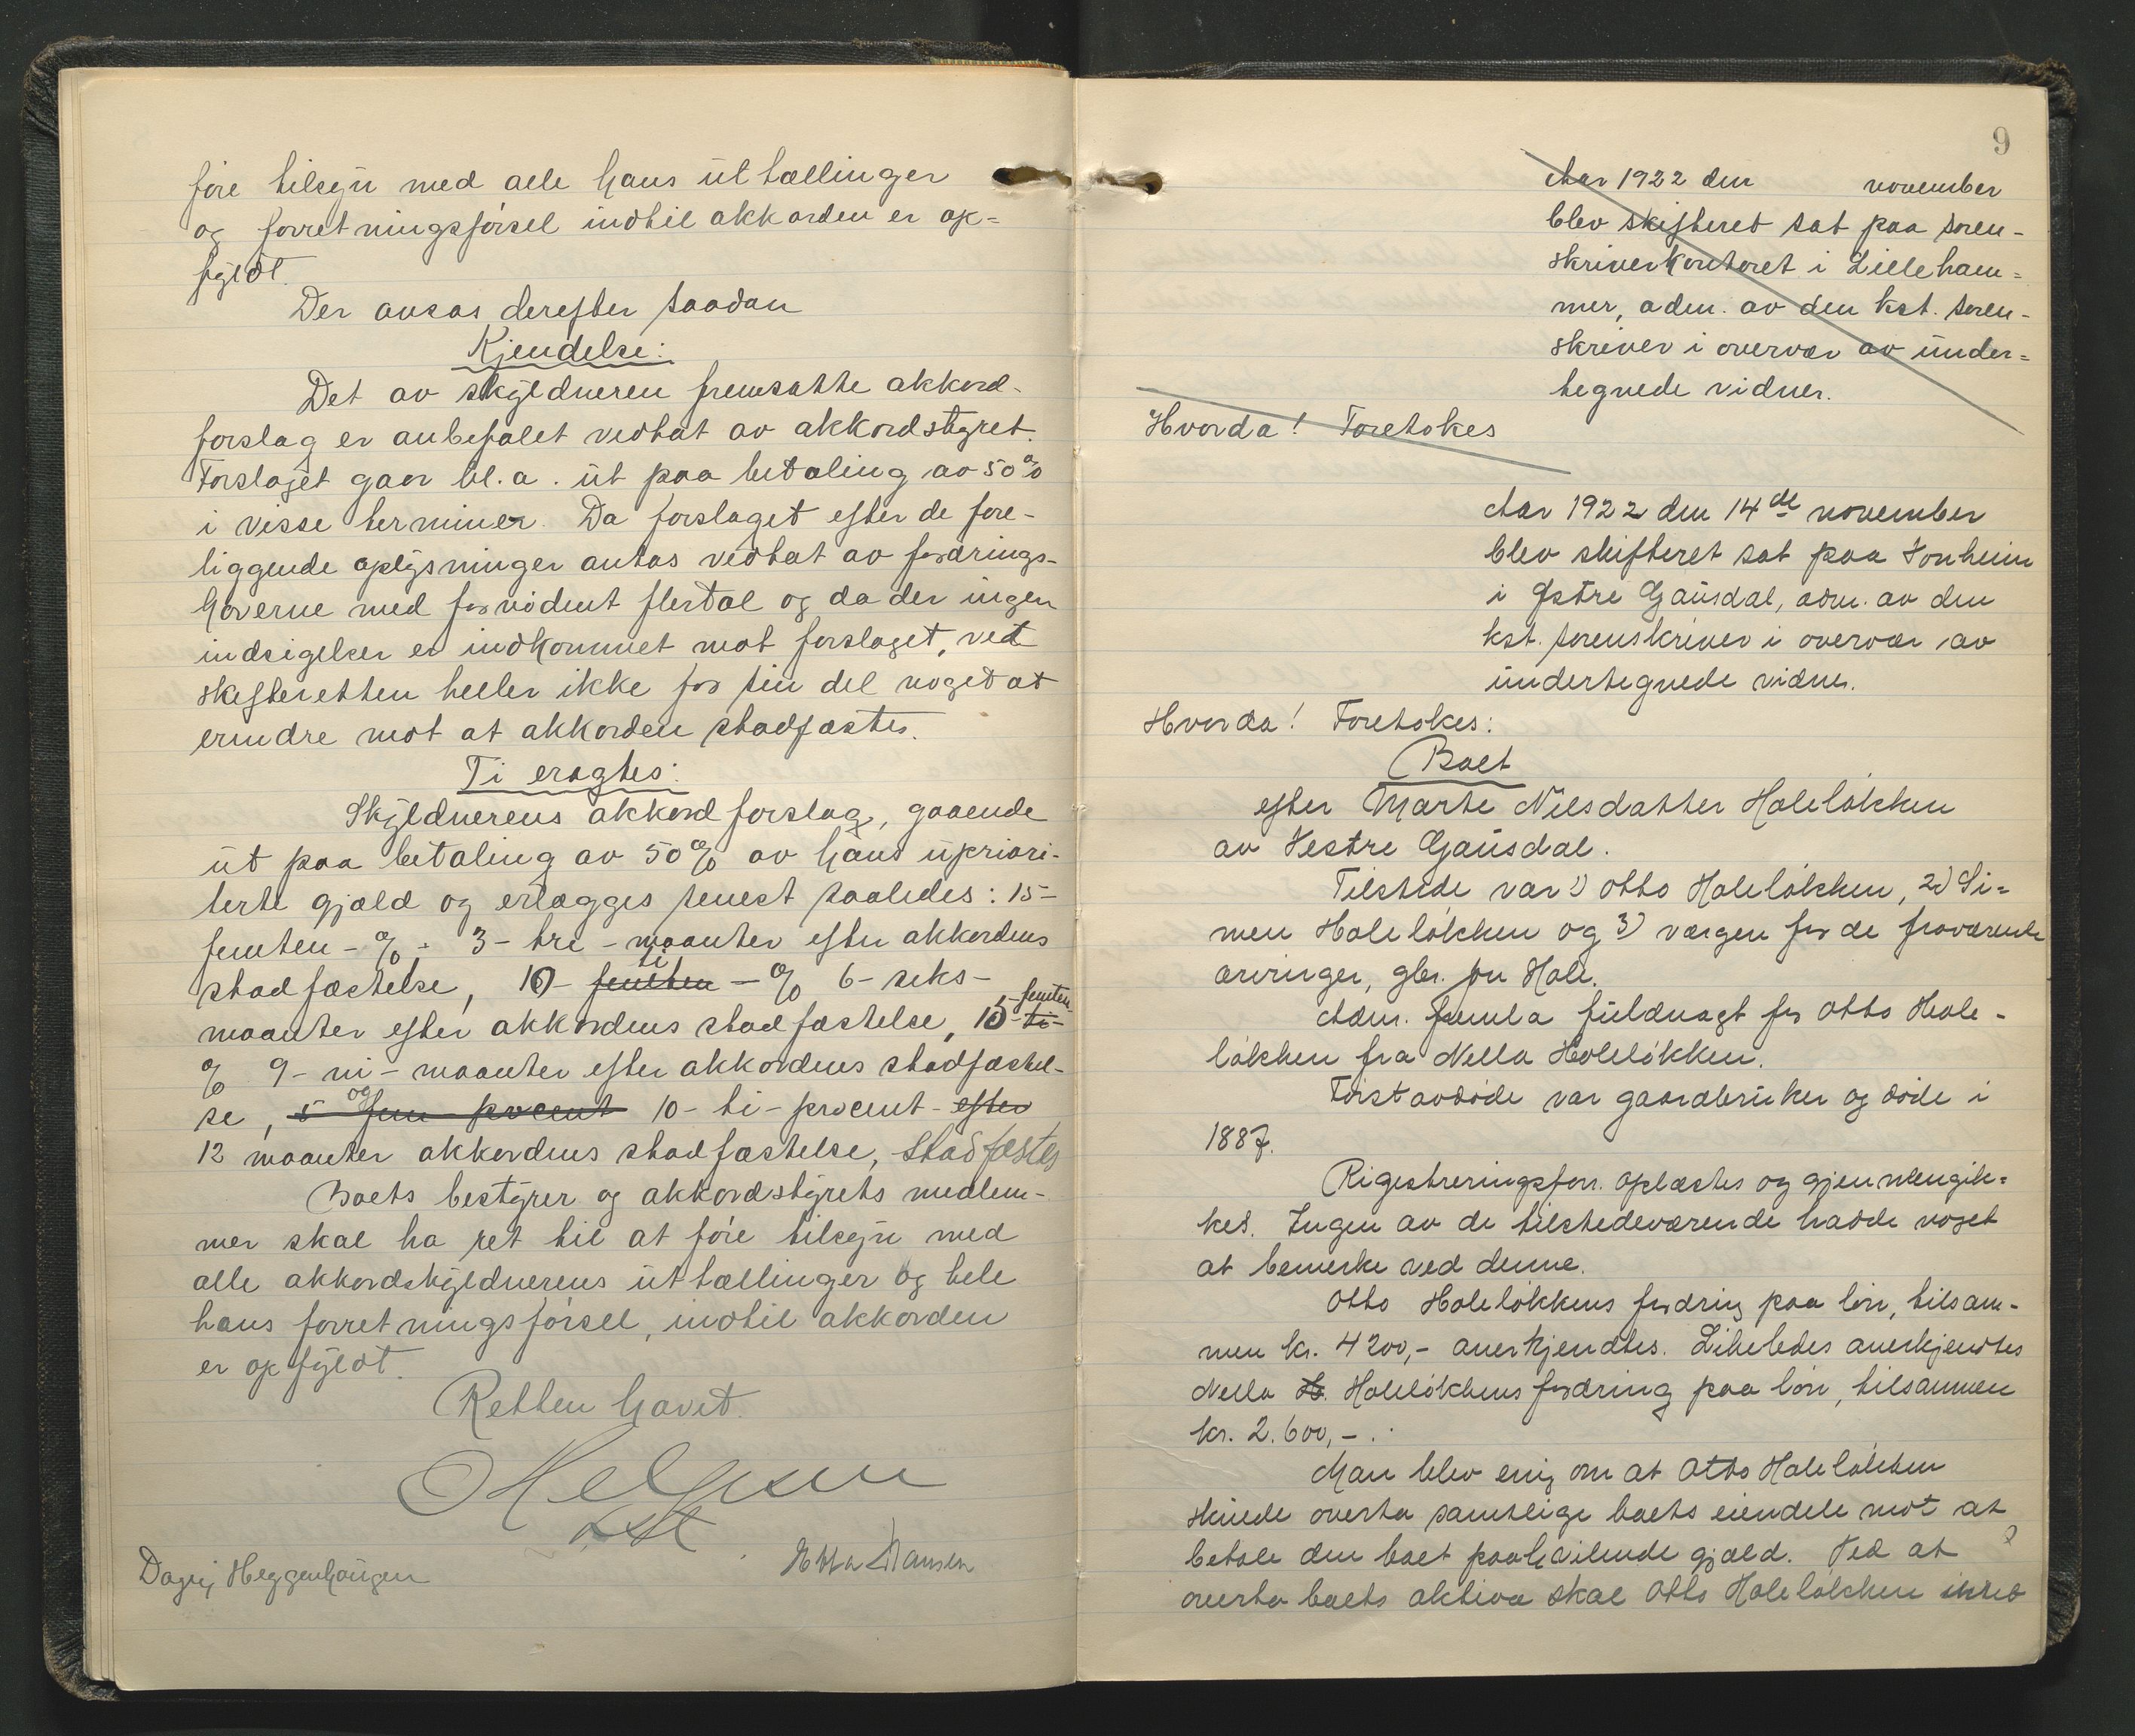 føre tilsyn med alle hans uttællinger
og forretningsførsel indtil akkorden er op-
fyldt.
Der avsas derefter saadan
Kjendelse:
Det av skyldneren fremsatte akkord-
forslag er anbefalet vedtat av akkordstyret.
Forslaget gaar bl. a. ut paa betaling av 50%
i visse terminer. Da forslaget efter de fore-
liggende oplysninger antas vedtat av fordrings-
haverne med fornødent flertal og da der ingen
indsigelser er indkommet mot forslaget, vet
skifteretten heller ikke for sin del noget at
erindre mot at akkorden stadfæstes.
Ti eragtes:
Skyldnerens akkordforslag, gaaende
ut paa betaling av 50% av hans upriori-
terte gjæld og erlægges senest saaledes: 15-
femten-%, 3-tre-maanter efter akkordens
stadfæstelse, 10- femten ti -% 6-seks-
maanter efter akkordens stadfæstelse, 15- ti- femten
% 9-ni-maanter efter akkordens stadfæstel-
se, 5 fem procent og 10-ti-procent- efter
12 maanter akkordens stadfæstelse, stadfæstes
Boets bestyrer og akkordstyrets medlem-
mer skal ha ret til at føre tilsyn med
alle akkordskyldnerens uttællinger og hele
hans forretningsførsel, indtil akkorden
er opfyldt.
Retten hævet.
kst
Dagny Heggenhaugen Hansen
9
Aar 1922 den november
blev skifteret sat paa soren-
skriverkontoret i Lilleham-
mer, adm. av den kst. soren-
skriver i overvær av under-
tegnede vidner.
Hvorda! Foretokes
Aar 1922 den 14de november
blev skifteret sat paa Jonheim
i Østre Gausdal, adm. av den
kst. sorenskriver i overvær av
undertegnede vidner.
Hvorda! Foretokes:
Boet
efter Marte Nilsdatter Holeløkken
av Vestre Gausdal.
Tilstede var 1) Otto Holeløkken, 2) Si-
men Holeløkken og 3) værgen for de fraværende
arvinger, gbr. Hole.
Adm. fremla fuldmagt for Otto Hole-
løkken fra Nella Holeløkken.
Førstavdøde var gaardbruker og døde i
1887.
Rigestreringsforr. oplæstes og gjennemgik-
kes. Ingen av de tilstedeværende hadde noget
at bemerke ved denne.
Otto Holeløkkens fordring paa løn, tilsam-
men kr. 4200,- anerkjendtes. Likeledes anerkjendtes
Nella H. Holeløkkens fordring paa løn, tilsammen
kr. 2.600,-.
Man blev enig om at Otto Holeløkken
skulde overta samtlige boets eiendele mot at
betale den boet paahvilende gjæld. Ved at
overta boets aktiva skal Otto Holeløkken